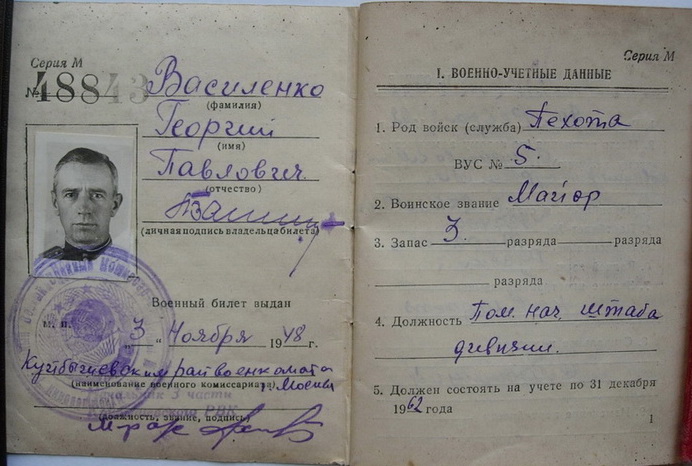 Серия М
№48843
Василенко
(фамилия)
Георгий
(имя)
Павлович
(отчество)
(личная подпись владельца билета)
Военный билет выдан
М. П.
„ 3 “ Ноября 1948 г.
Куйбышевским райвоенкомата
(наименование военного комиссариата) г. Москвы
3 части
РВК
(должность, звание, подпись)
Серия М
I. ВОЕННО-УЧЕТНЫЕ ДАННЫЕ
1. Род войск (служба) Пехота
ВУС № 5.
2. Воинское звание Майор
3. Запас 3. разряда разряда
разряда
4. Должность Пом. нач. штаба
дивизии.
5. Должен состоять на учете по 31 декабря
1962 года
1